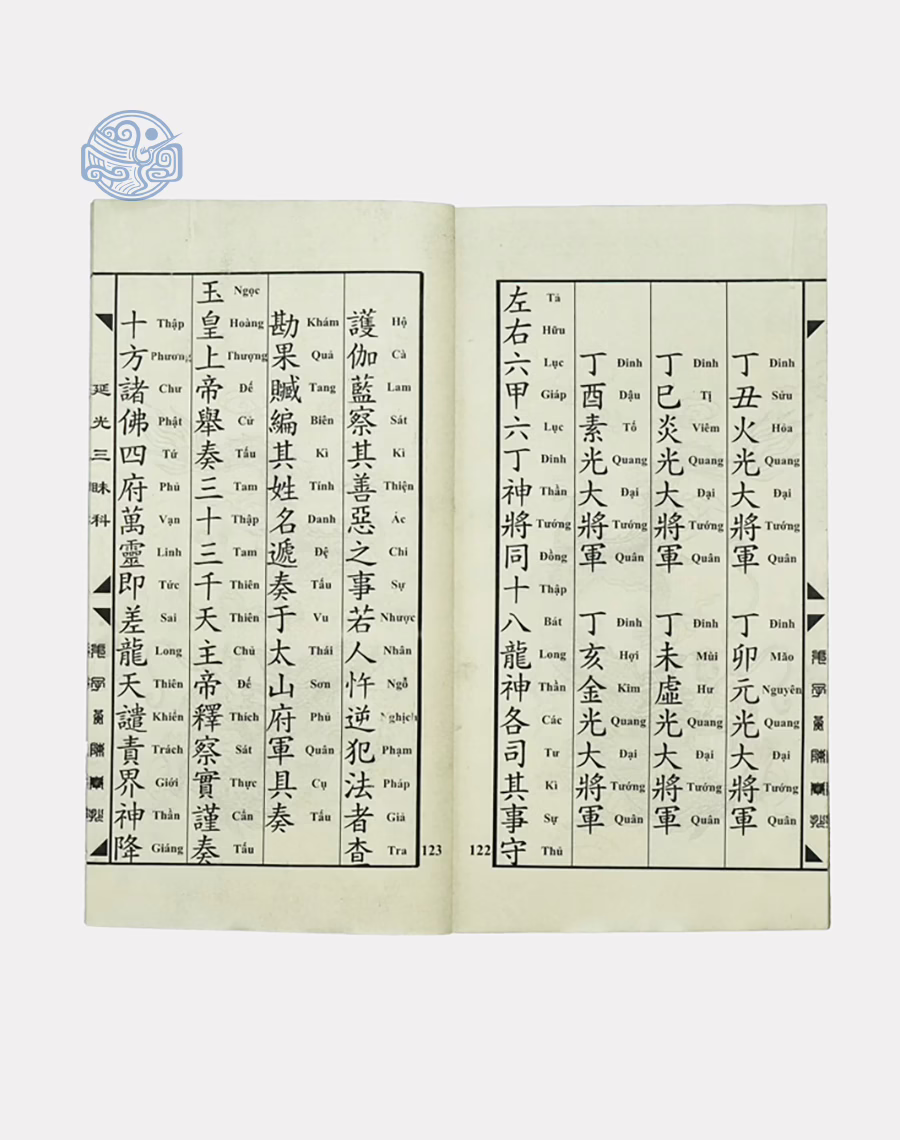 丁丑火光大將軍 丁卯元光大將軍
Đinh Sửu Hỏa Quang Đại Tướng Quân Đinh Mão Nguyên Quang Đại Tướng Quân
丁巳炎光大將軍 丁未虛光大將軍
Đinh Tị Viêm Quang Đại Tướng Quân Đinh Mùi Hư Quang Đại Tướng Quân
丁酉素光大將軍 丁亥金光大將軍
Đinh Dậu Tố Quang Đại Tướng Quân Đinh Hợi Kim Quang Đại Tướng Quân
左右六甲六丁神將同十八龍神各司其事守
Tả Hữu Lục Giáp Lục Đinh Thần Tướng Đồng Thập Bát Long Thần Các Tư Kì Sự Thủ
122
護伽藍察其善惡之事若人忤逆犯法者查
Hộ Cà Lam Sát Kì Thiện Ác Chi Sự Nhược Nhân Ngỗ Nghịch Phạm Pháp Giả Tra
勘果贓編其姓名遞奏于太山府軍具奏
Khám Quả Tang Biên Kì Tính Danh Đệ Tấu Vu Thái Sơn Phủ Quân Cụ Tấu
玉皇上帝舉奏三十三千天主帝釋察實謹奏
Ngọc Hoàng Thượng Đế Cử Tấu Tam Thập Tam Thiên Thiên Chủ Đế Thích Sát Thực Cẩn Tấu
十方諸佛四府萬靈即差龍天譴責界神降
Thập Phương Chư Phật Tứ Phủ Vạn Linh Tức Sai Long Thiên Khiển Trách Giới Thần Giáng
延光三昧科
123